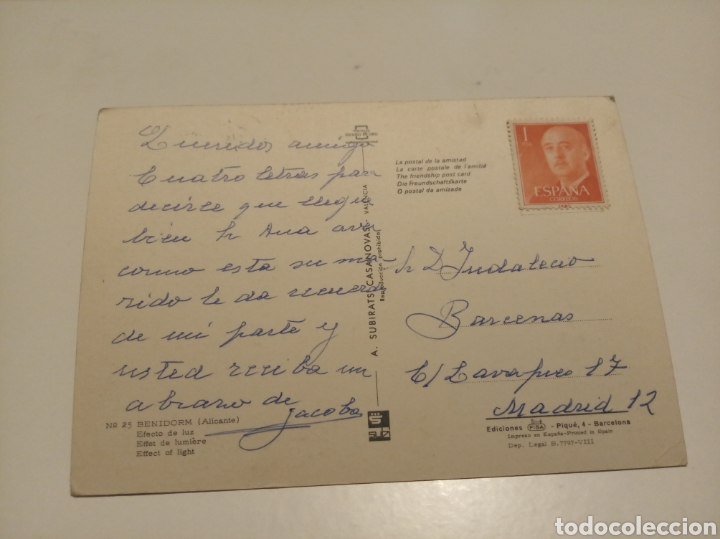 Queridos amigo
Cuatro letras para
decirle que llegue
bien Sr Ana
como esta su ma
rido le da
de mi parte y
usted reciba un
abrazo de
Jacoba
Nº 25 BENIDORM (Alicante)
Efecto de luz
Effet de lumière
Effect of light
A. SUBIRATS CASANOVAS - VALENCIA
Reproducción prohibida
La postal de la amistad
La carte postale de l'amitié
The friendship post card
Die Freundschaftskarte
O postal da amizade
1
ESPAÑA
CORREOS
Sr D Indalecio
Barcenas
C/ Lavapies 17
Madrid 12
Ediciones - Piqué, 4 - Barcelona
Impreso en España-Printed in Spain
Dep. Legal B. 7797-VIII
todocoleccion